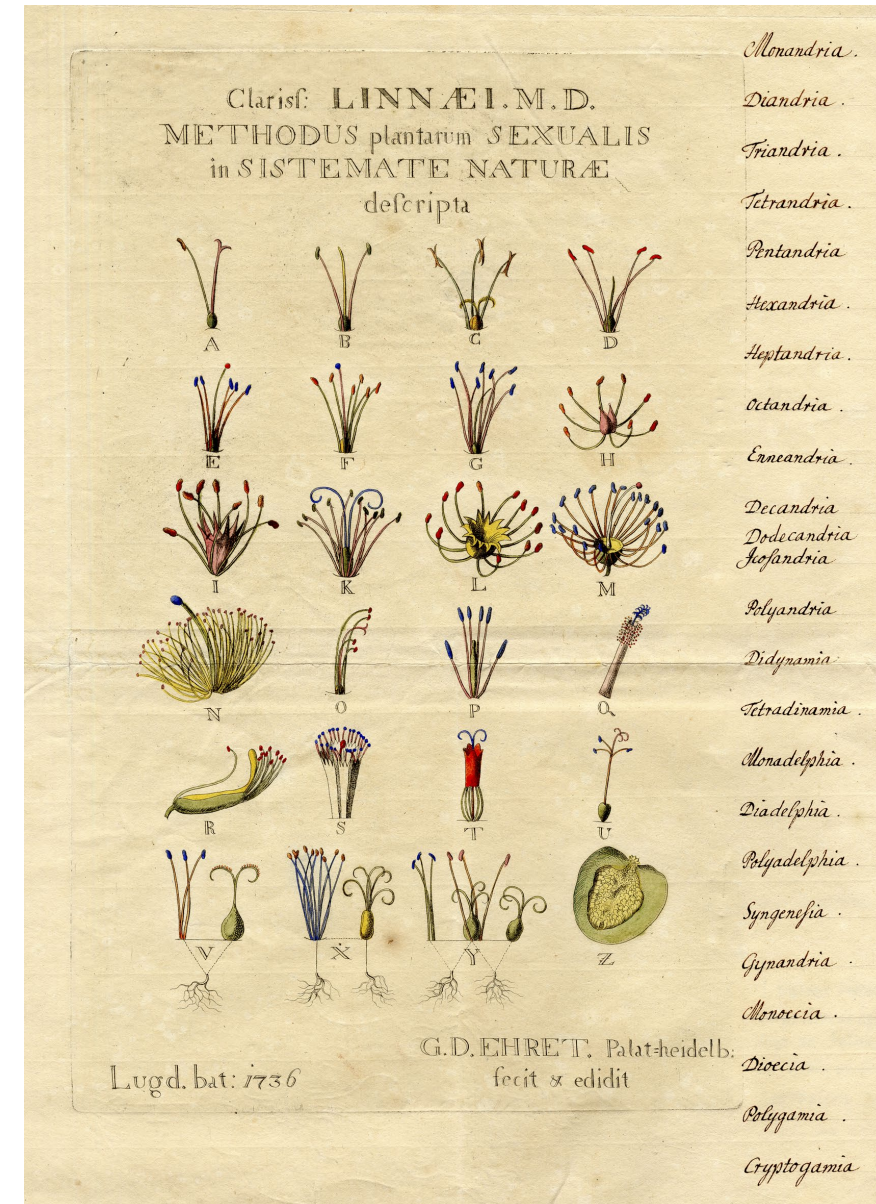 Clariſſ: LINNÆI. M. D.
METHODUS plantarum SEXUALIS
in SISTEMATE NATURÆ
deſcripta
A B C D
E F G H
I K L M
N O P Q
R S T U
V X Y Z
Lugd. bat: 1736
G.D. EHRET. Palat=heidelb:
fecit & edidit
Monandria.
Diandria.
Triandria.
Tetrandria.
Pentandria
Hexandria.
Heptandria.
Octandria.
Enneandria.
Decandria
Dodecandria
Jcoſandria
Polyandria
Didynamia
Tetradinamia.
Monadelphia.
Diadelphia.
Polyadelphia.
Syngeneſia.
Gynandria.
Monoecia.
Dioecia.
Polygamia.
Cryptogamia